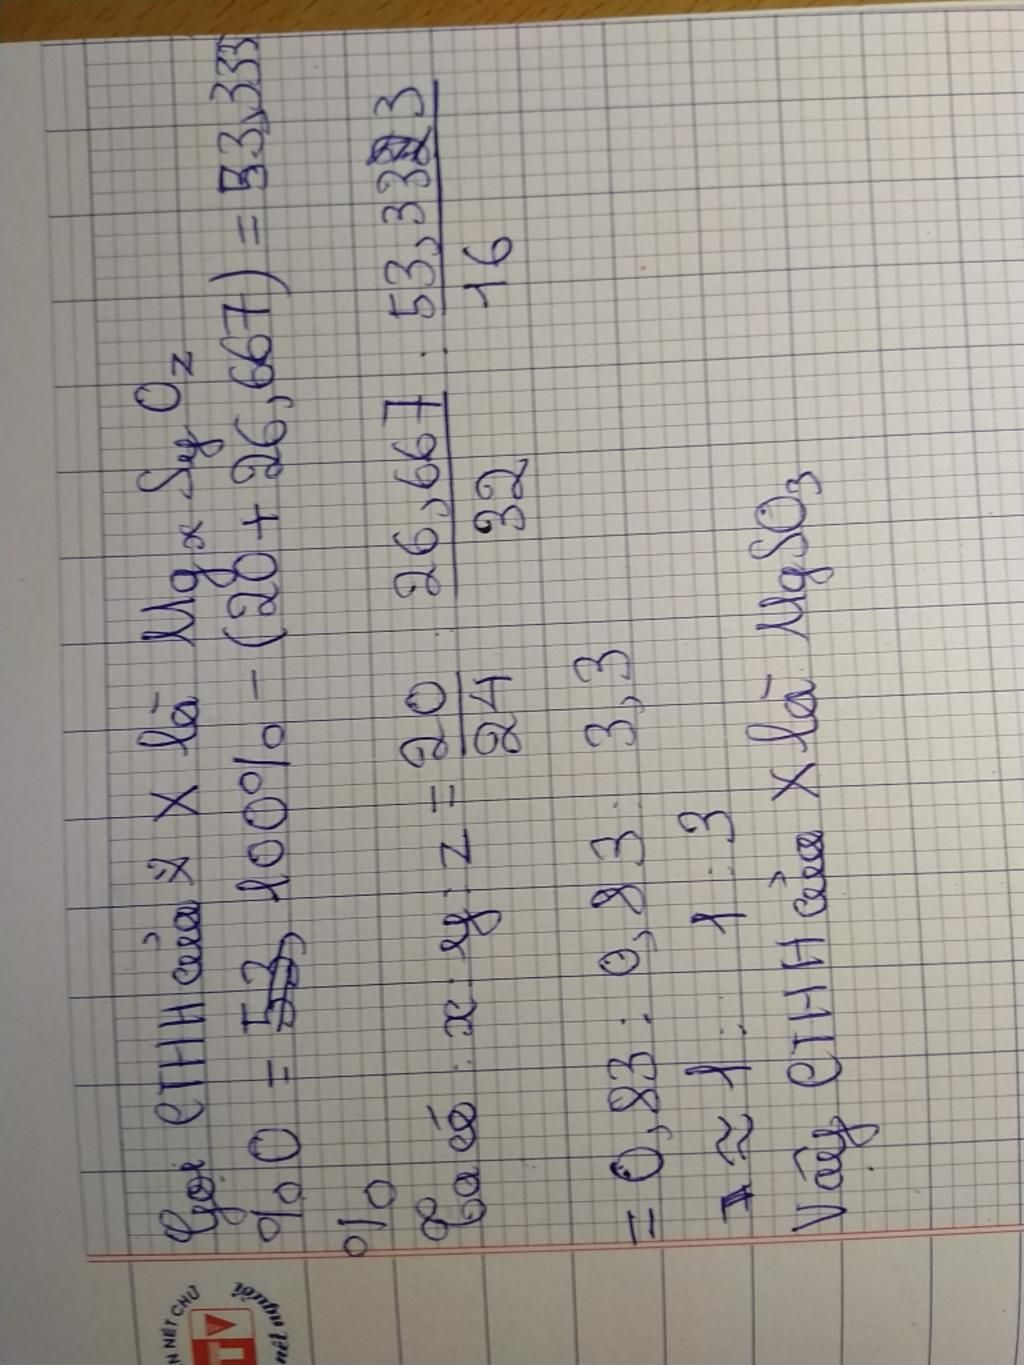 Gọi CTHH của X là MgxSyOz
%O = 53, 100% - (20 + 26,667) = 53,333
%
Ta có : x : y : z = 20/24 : 26,667/32 : 53,333/16
= 0,83 : 0,83 : 3,3
≈ 1 : 1 : 3
Vậy CTHH của X là MgSO3
N NÉT CHỮ
nết người